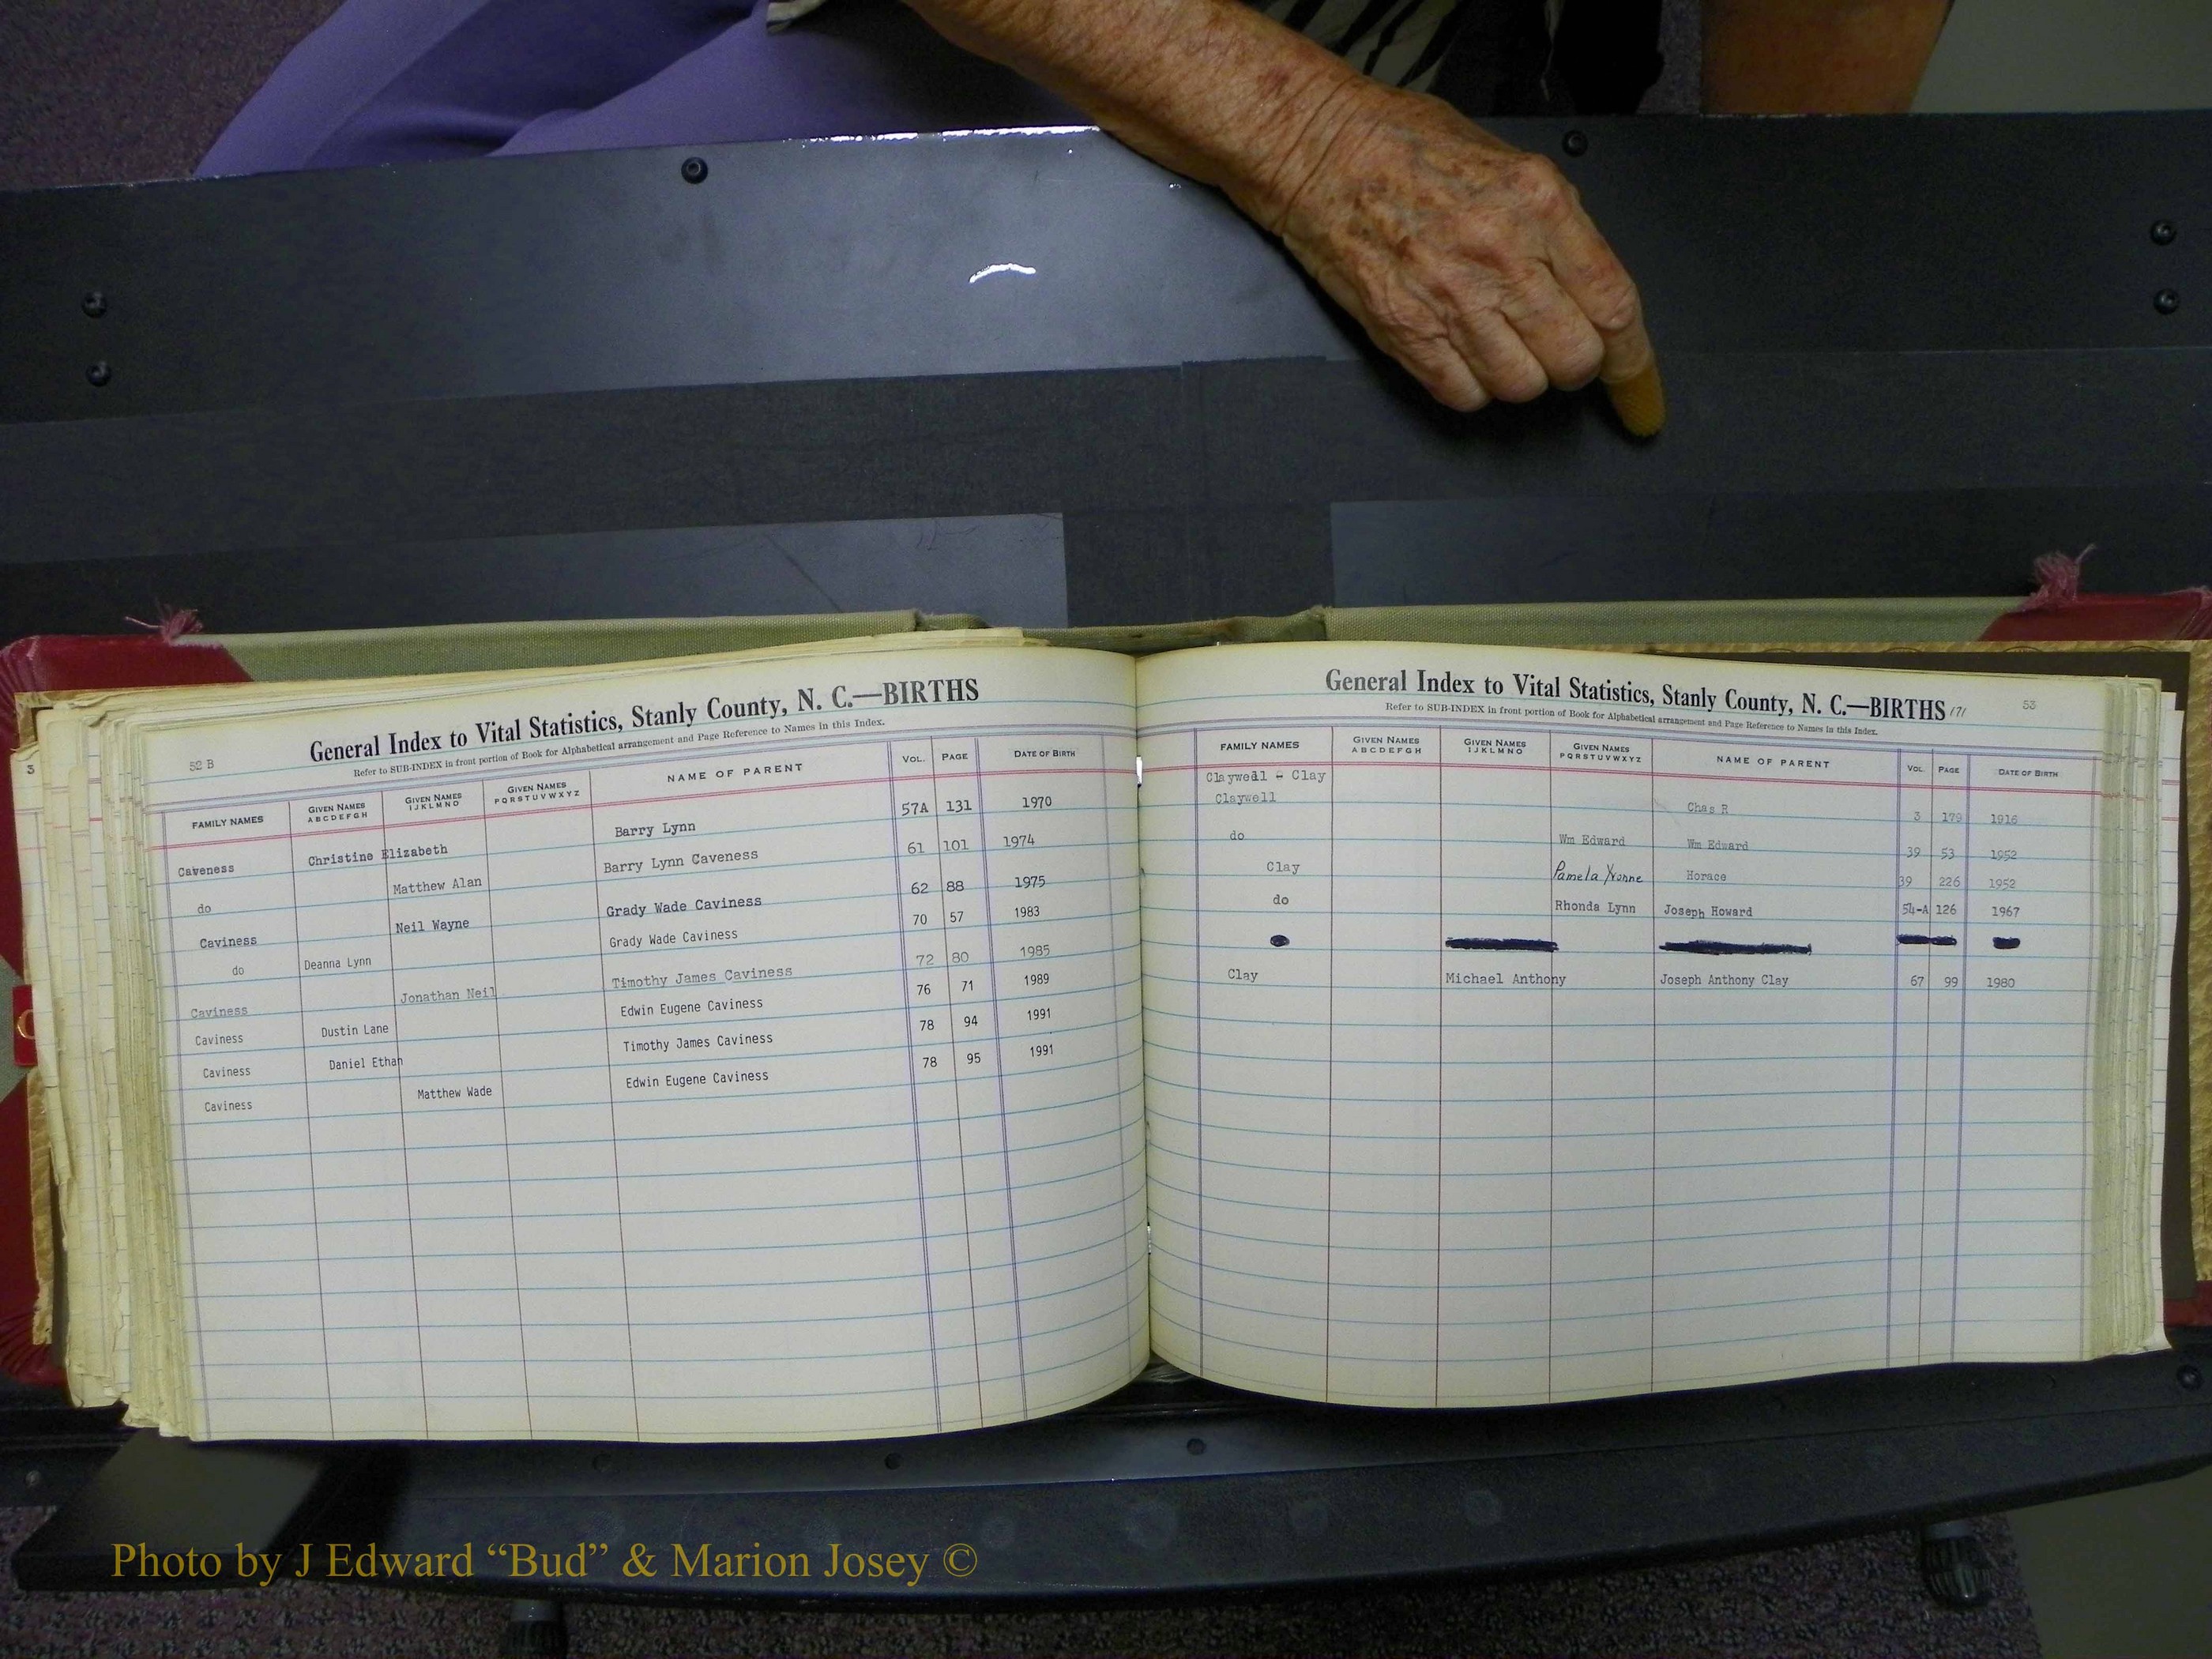 52 B
General Index to Vital Statistics, Stanly County, N. C.—BIRTHS
Refer to SUB-INDEX in front portion of Book for Alphabetical arrangement and Page Reference to Names in this Index.
FAMILY NAMES GIVEN NAMES ABCDEFGH GIVEN NAMES IJKLMNO GIVEN NAMES PQRSTUVWXYZ NAME OF PARENT VOL. PAGE DATE OF BIRTH
Caveness Christine Elizabeth Barry Lynn 57A 131 1970
do Matthew Alan Barry Lynn Caveness 61 101 1974
Caviness Neil Wayne Grady Wade Caviness 62 88 1975
do Deanna Lynn Grady Wade Caviness 70 57 1983
Caviness Jonathan Neil Timothy James Caviness 72 80 1985
Caviness Dustin Lane Edwin Eugene Caviness 76 71 1989
Caviness Daniel Ethan Timothy James Caviness 78 94 1991
Caviness Matthew Wade Edwin Eugene Caviness 78 95 1991
General Index to Vital Statistics, Stanly County, N. C.—BIRTHS 171 53
Refer to SUB-INDEX in front portion of Book for Alphabetical arrangement and Page Reference to Names in this Index.
FAMILY NAMES GIVEN NAMES ABCDEFGH GIVEN NAMES IJKLMNO GIVEN NAMES PQRSTUVWXYZ NAME OF PARENT VOL. PAGE DATE OF BIRTH
Claywell - Clay
Claywell Chas R 3 179 1916
do Wm Edward Wm Edward 39 53 1952
Clay Pamela Yvonne Horace 39 226 1952
do Rhonda Lynn Joseph Howard 54-A 126 1967
Clay Michael Anthony Joseph Anthony Clay 67 99 1980
3
Photo by J Edward “Bud” & Marion Josey ©